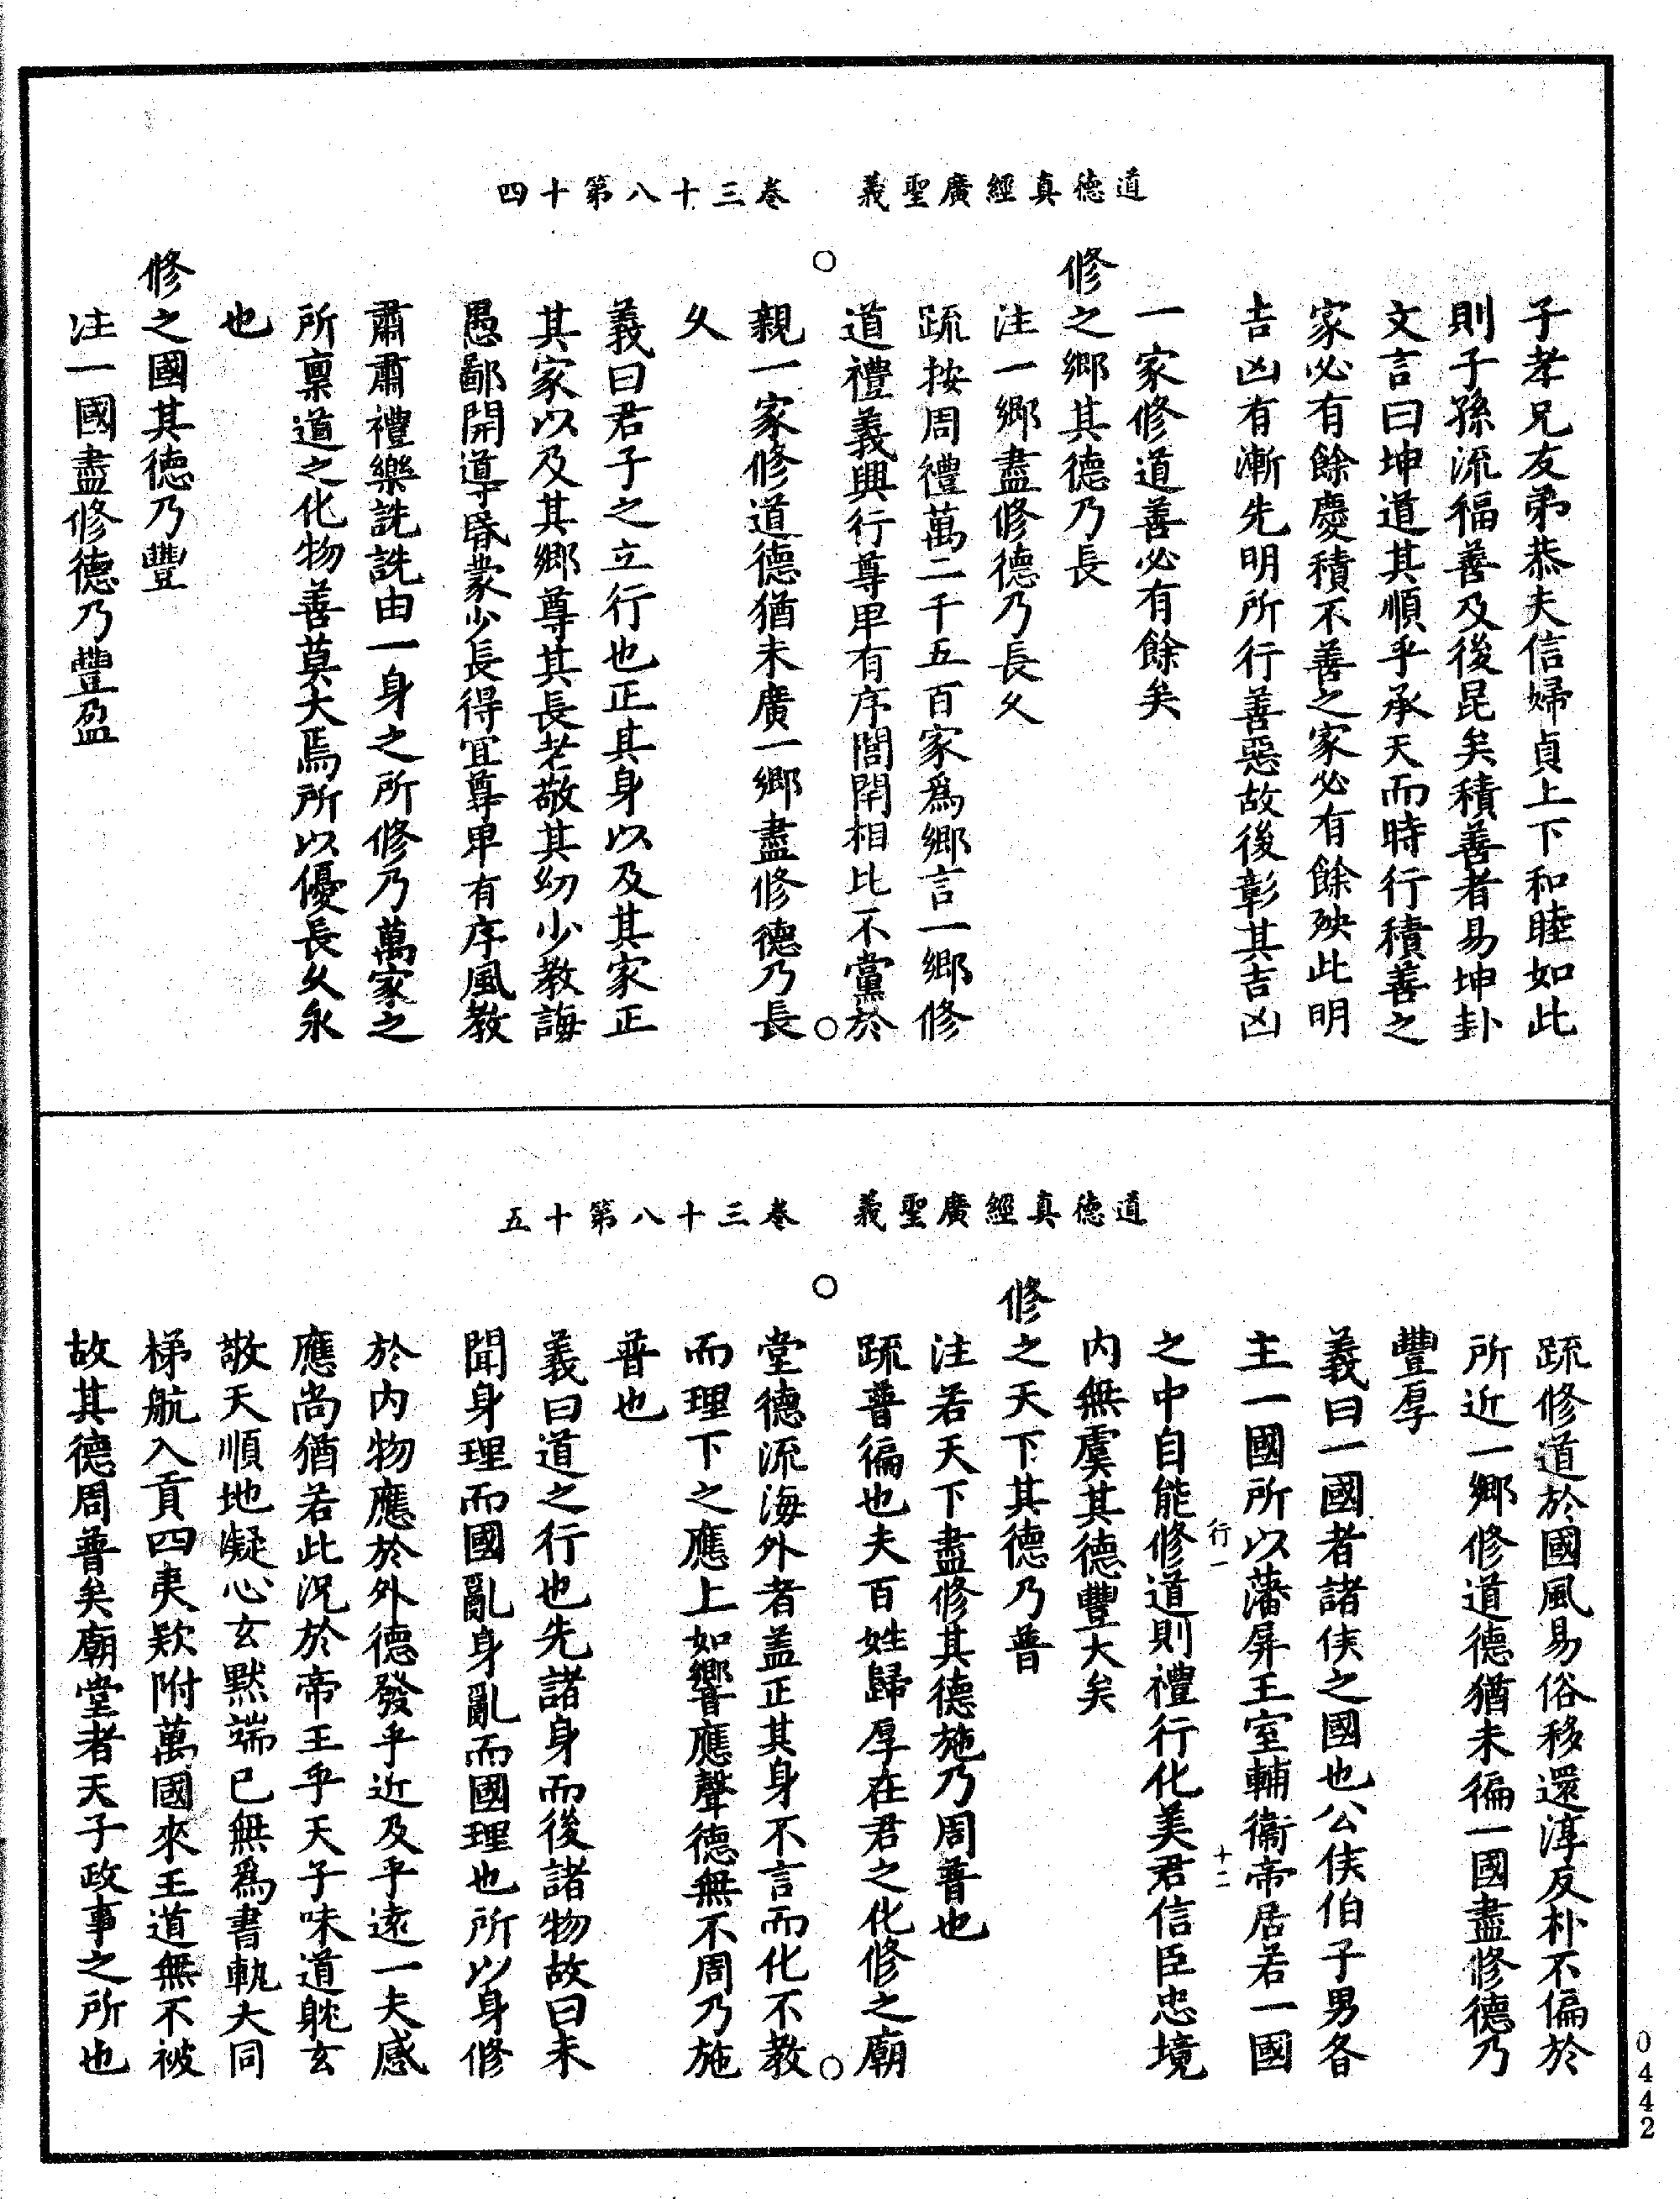 道德真經廣聖義　卷三十八第十四
子孝兄友弟恭夫信婦貞上下和睦如此
則子孫流福善及後昆矣積善者易坤卦
文言曰坤道其順乎承天而時行積善之
家必有餘慶積不善之家必有餘殃此明
吉凶有漸先明所行善惡故後彰其吉凶
一家修道善必有餘矣
修之鄉其德乃長
注一鄉盡修德乃長久
疏按周禮萬二千五百家爲鄉言一鄉修
道禮義興行尊卑有序閭閈相比不黨於
親一家修道德猶未廣一鄉盡修德乃長
久
義曰君子之立行也正其身以及其家正
其家以及其鄉尊其長老敬其幼少教誨
愚鄙開導昏蒙少長得宜尊卑有序風教
肅肅禮樂詵詵由一身之所修乃萬家之
所稟道之化物善莫大焉所以優長久永
也
修之國其德乃豐
注一國盡修德乃豐盈
道德真經廣聖義　卷三十八第十五
疏修道於國風易俗移還淳反朴不偏於
所近一鄉修道德猶未徧一國盡修德乃
豐厚
義曰一國者諸侯之國也公侯伯子男各
主一國所以藩屏王室輔衞帝居若一國
行一　十二
之中自能修道則禮行化美君信臣忠境
内無虞其德豐大矣
修之天下其德乃普
注若天下盡修其德施乃周普也
疏普徧也夫百姓歸厚在君之化修之廟
堂德流海外者盖正其身不言而化不教
而理下之應上如響應聲德無不周乃施
普也
義曰道之行也先諸身而後諸物故曰未
聞身理而國亂身亂而國理也所以身修
於内物應於外德發乎近及乎遠一夫感
應尚猶若此況於帝王乎天子味道躭玄
敬天順地凝心玄默端已無爲書軌大同
梯航入貢四夷欵附萬國來王道無不被
故其德周普矣廟堂者天子政事之所也
0442